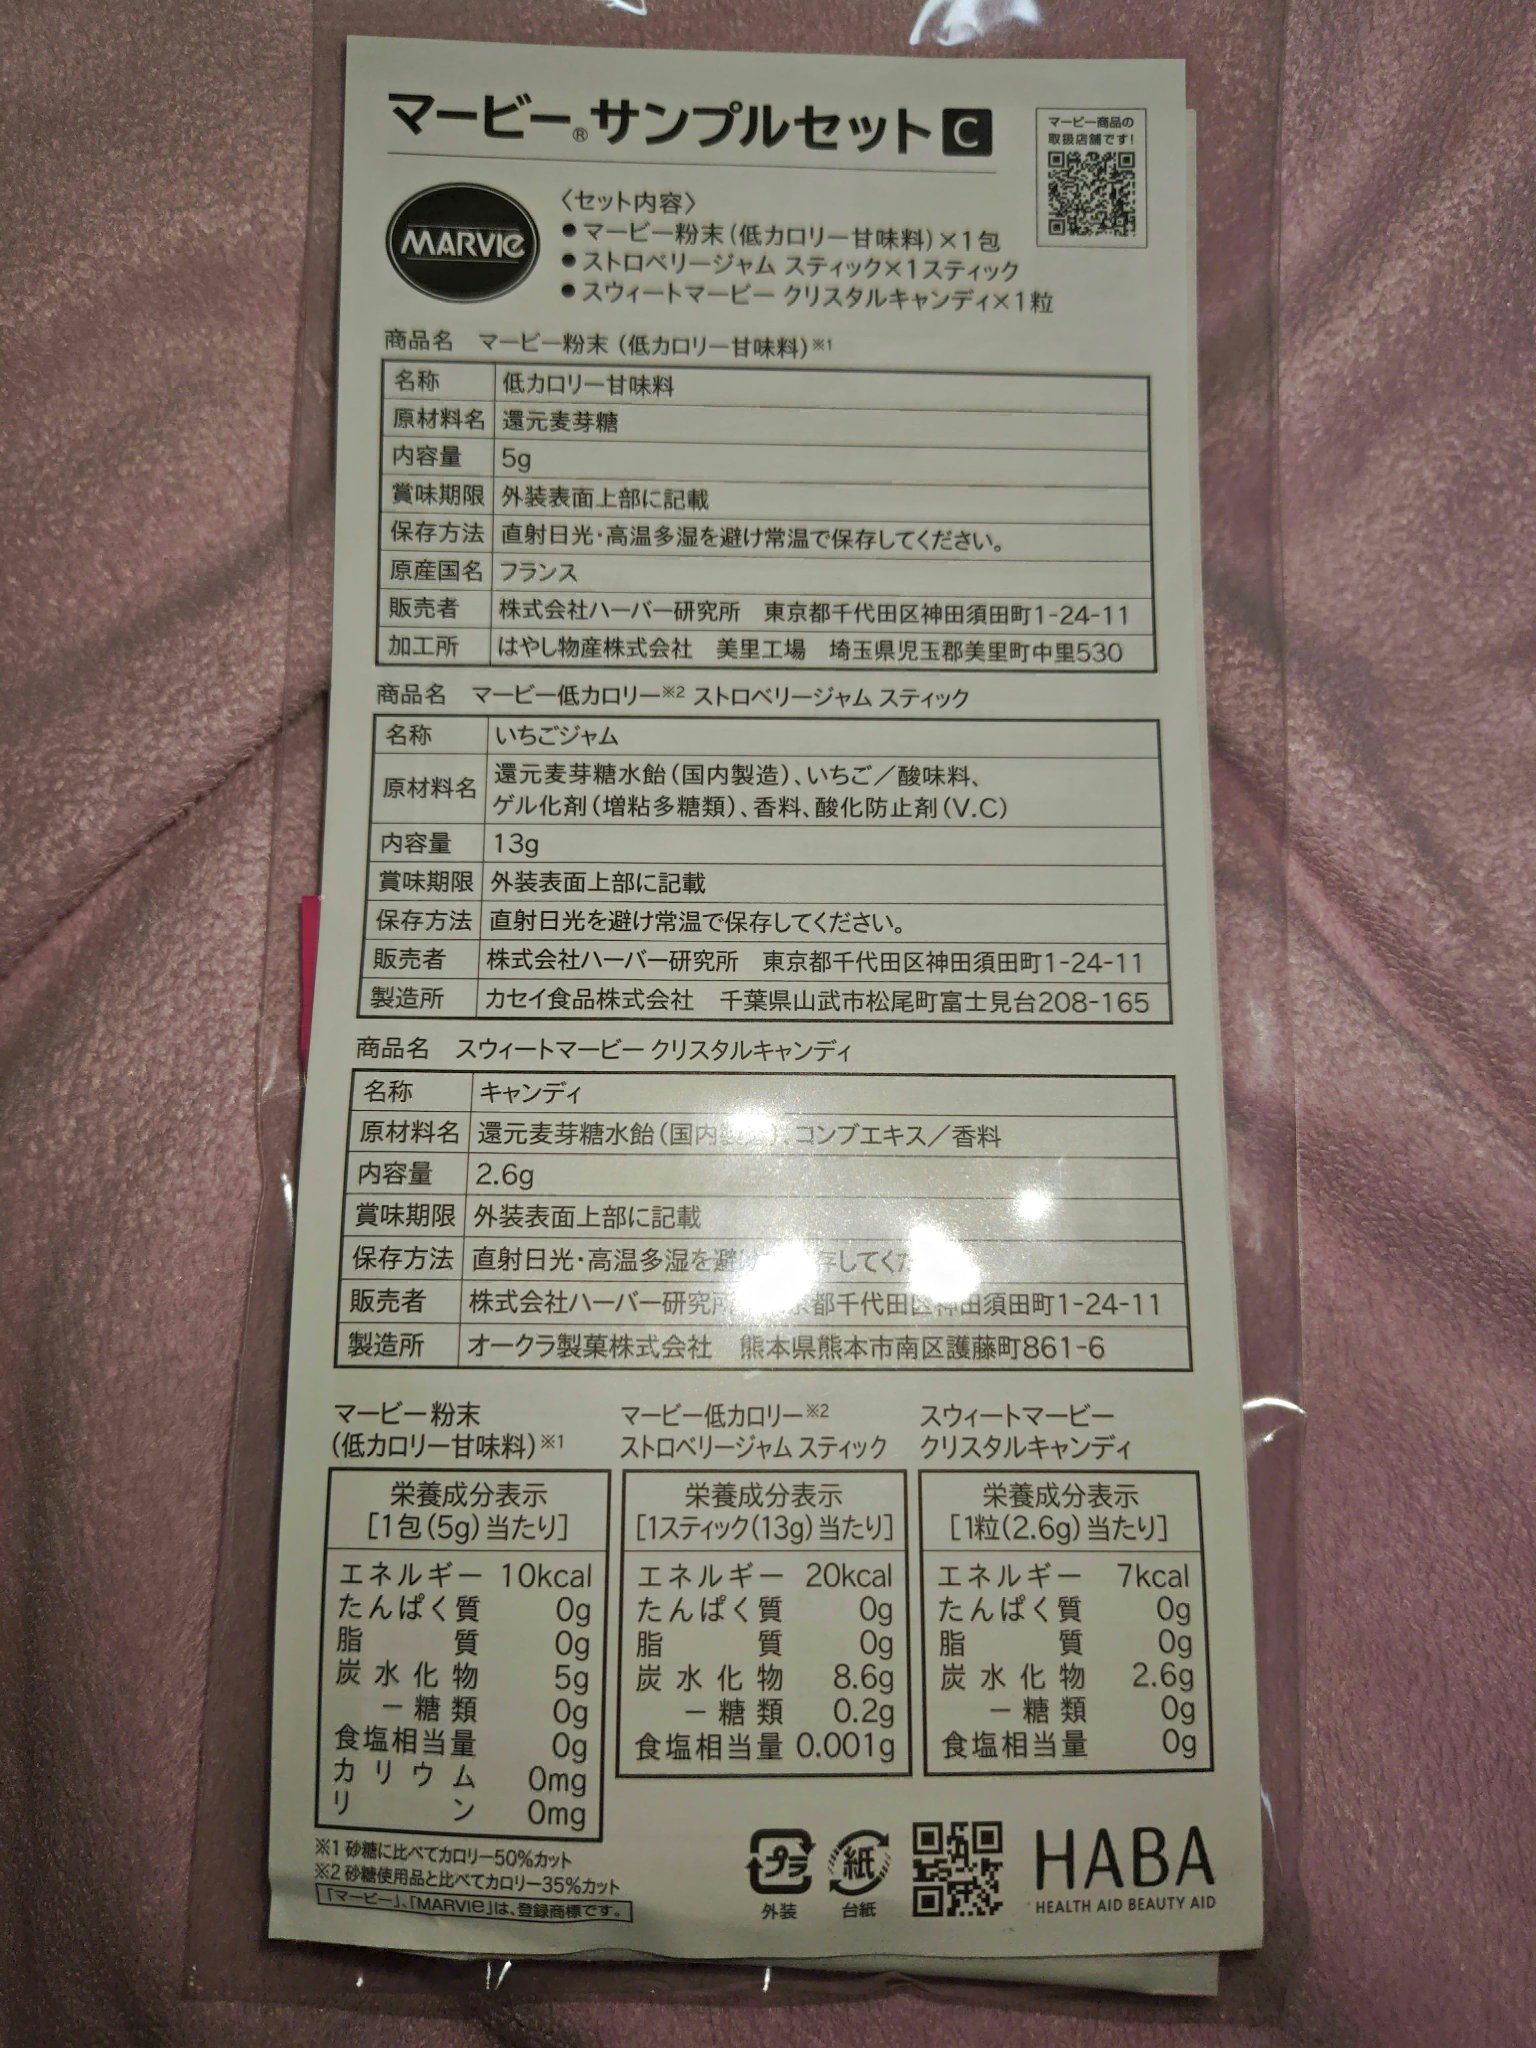 マービー®サンプルセットC
マービー商品の
取扱店舗です!
MARVIe
〈セット内容〉
●マービー粉末(低カロリー甘味料)×1包
●ストロベリージャム スティック×1スティック
●スウィートマービー クリスタルキャンディ×1粒
商品名 マービー粉末(低カロリー甘味料)※1
名称 低カロリー甘味料
原材料名 還元麦芽糖
内容量 5g
賞味期限 外装表面上部に記載
保存方法 直射日光・高温多湿を避け常温で保存してください。
原産国名 フランス
販売者 株式会社ハーバー研究所 東京都千代田区神田須田町1-24-11
加工所 はやし物産株式会社 美里工場 埼玉県児玉郡美里町中里530
商品名 マービー低カロリー※2 ストロベリージャム スティック
名称 いちごジャム
原材料名 還元麦芽糖水飴(国内製造)、いちご/酸味料、
ゲル化剤(増粘多糖類)、香料、酸化防止剤(V.C)
内容量 13g
賞味期限 外装表面上部に記載
保存方法 直射日光を避け常温で保存してください。
販売者 株式会社ハーバー研究所 東京都千代田区神田須田町1-24-11
製造所 カセイ食品株式会社 千葉県山武市松尾町富士見台208-165
商品名 スウィートマービー クリスタルキャンディ
名称 キャンディ
原材料名 還元麦芽糖水飴(国内 )、コンブエキス/香料
内容量 2.6g
賞味期限 外装表面上部に記載
保存方法 直射日光・高温多湿を避 存してくだ
販売者 株式会社ハーバー研究所 京都千代田区神田須田町1-24-11
製造所 オークラ製菓株式会社 熊本県熊本市南区護藤町861-6
マービー粉末
(低カロリー甘味料)※1
栄養成分表示
[1包(5g)当たり]
エネルギー 10kcal
たんぱく質 0g
脂質 0g
炭水化物 5g
－糖類 0g
食塩相当量 0g
カリウム 0mg
リン 0mg
マービー低カロリー※2
ストロベリージャム スティック
栄養成分表示
[1スティック(13g)当たり]
エネルギー 20kcal
たんぱく質 0g
脂質 0g
炭水化物 8.6g
－糖類 0.2g
食塩相当量 0.001g
スウィートマービー
クリスタルキャンディ
栄養成分表示
[1粒(2.6g)当たり]
エネルギー 7kcal
たんぱく質 0g
脂質 0g
炭水化物 2.6g
－糖類 0g
食塩相当量 0g
※1 砂糖に比べてカロリー50%カット
※2 砂糖使用品と比べてカロリー35%カット
「マービー」、「MARVIe」は、登録商標です。
プラ
外装
紙
台紙
HABA
HEALTH AID BEAUTY AID